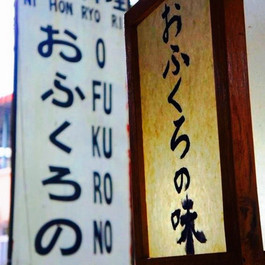 NI HON RYO RI
おふくろの
O FU KU RO NO
おふくろの味